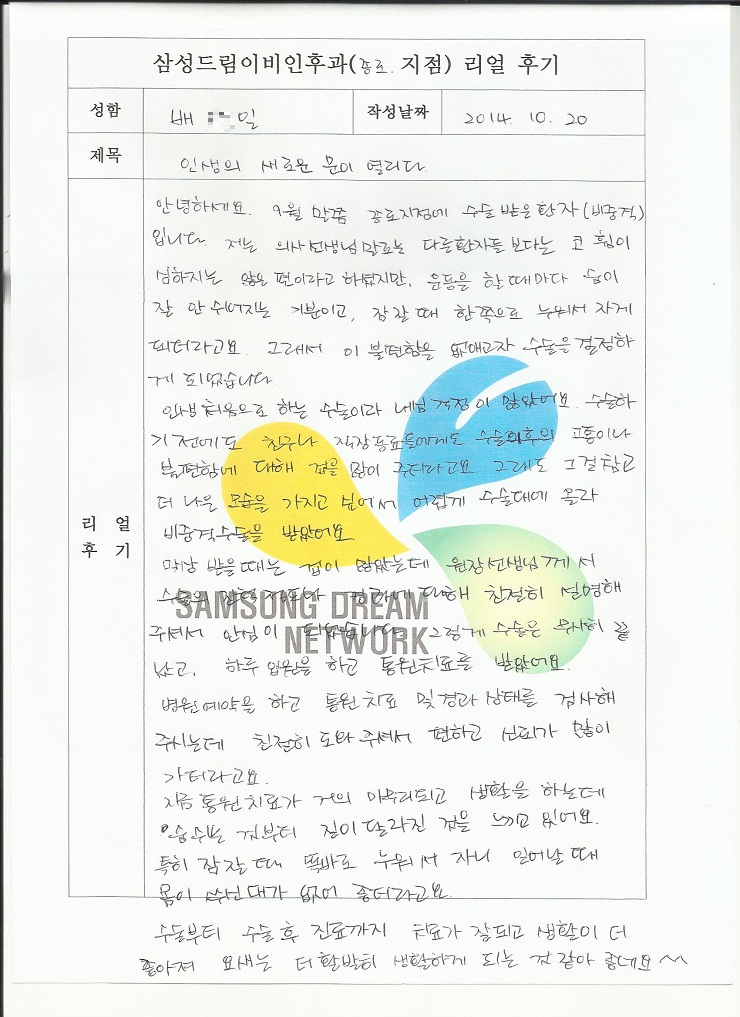 삼성드림이비인후과(종로 지점) 리얼 후기
성함 배 일 작성날짜 2014. 10. 20
제목 인생의 새로운 문이 열리다.
리 얼
후 기
안녕하세요. 9월 말쯤 종로지점에 수술 받은 환자(비중격)
입니다. 저는 의사선생님 말로는 다른환자들 보다는 코 휨이
심하지는 않은 편이라고 하셨지만, 운동을 할 때마다 숨이
잘 안 쉬어지는 기분이고, 잠잘 때 한쪽으로 누워서 자게
되더라고요. 그래서 이 불편함을 없애고자 수술을 결정하
게 되었습니다.
인생 처음으로 하는 수술이라 내심 걱정이 많았어요. 수술하
기 전에도 친구나 직장동료들에게도 수술이후의 고통이나
불편함에 대해 겁을 많이 주더라고요. 그래도 그걸 참고
더 나은 모습을 가지고 싶어서 어렵게 수술대에 올라
비중격수술을 받았어요.
막상 받을때는 겁이 많았는데 원장선생님께서
수술의 대해 친절히 설명해
주셔서 안심이 되었습니다. 그렇게 수술은 무사히 끝
났고, 하루 입원을 하고 통원치료를 받았어요.
병원예약을 하고 통원치료 및 경과 상태를 검사해
주시는데 친절히 도와 주셔서 편하고 신뢰가 많이
가더라고요.
지금 통원치료가 거의 마무리되고 생활을 하는데
숨쉬는 것부터 질이 달라진 것을 느끼고 있어요.
특히 잠잘 때 똑바로 누워서 자니 일어날 때
몸이 쑤신 데가 없어 좋더라고요.
수술부터 수술 후 진료까지 치료가 잘되고 생활이 더
좋아져 요새는 더 활발히 생활하게 되는 것 같아 좋네요 ^^
SAMSONG DREAM
NETWORK